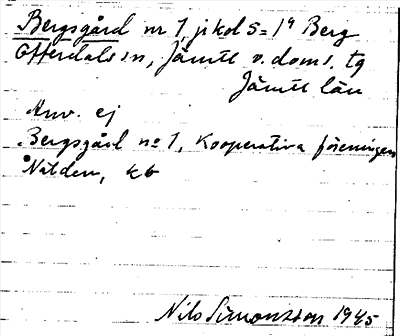 Bergsgård nr 1, jkol 5=1ª Berg
Offerdals sn, Jämtl v. doms. tg
Jämtl län
Anv. ej
Bergsgård no 1, Kooperativa föreningen
Nälden, kb
Nils Simonsson 1945